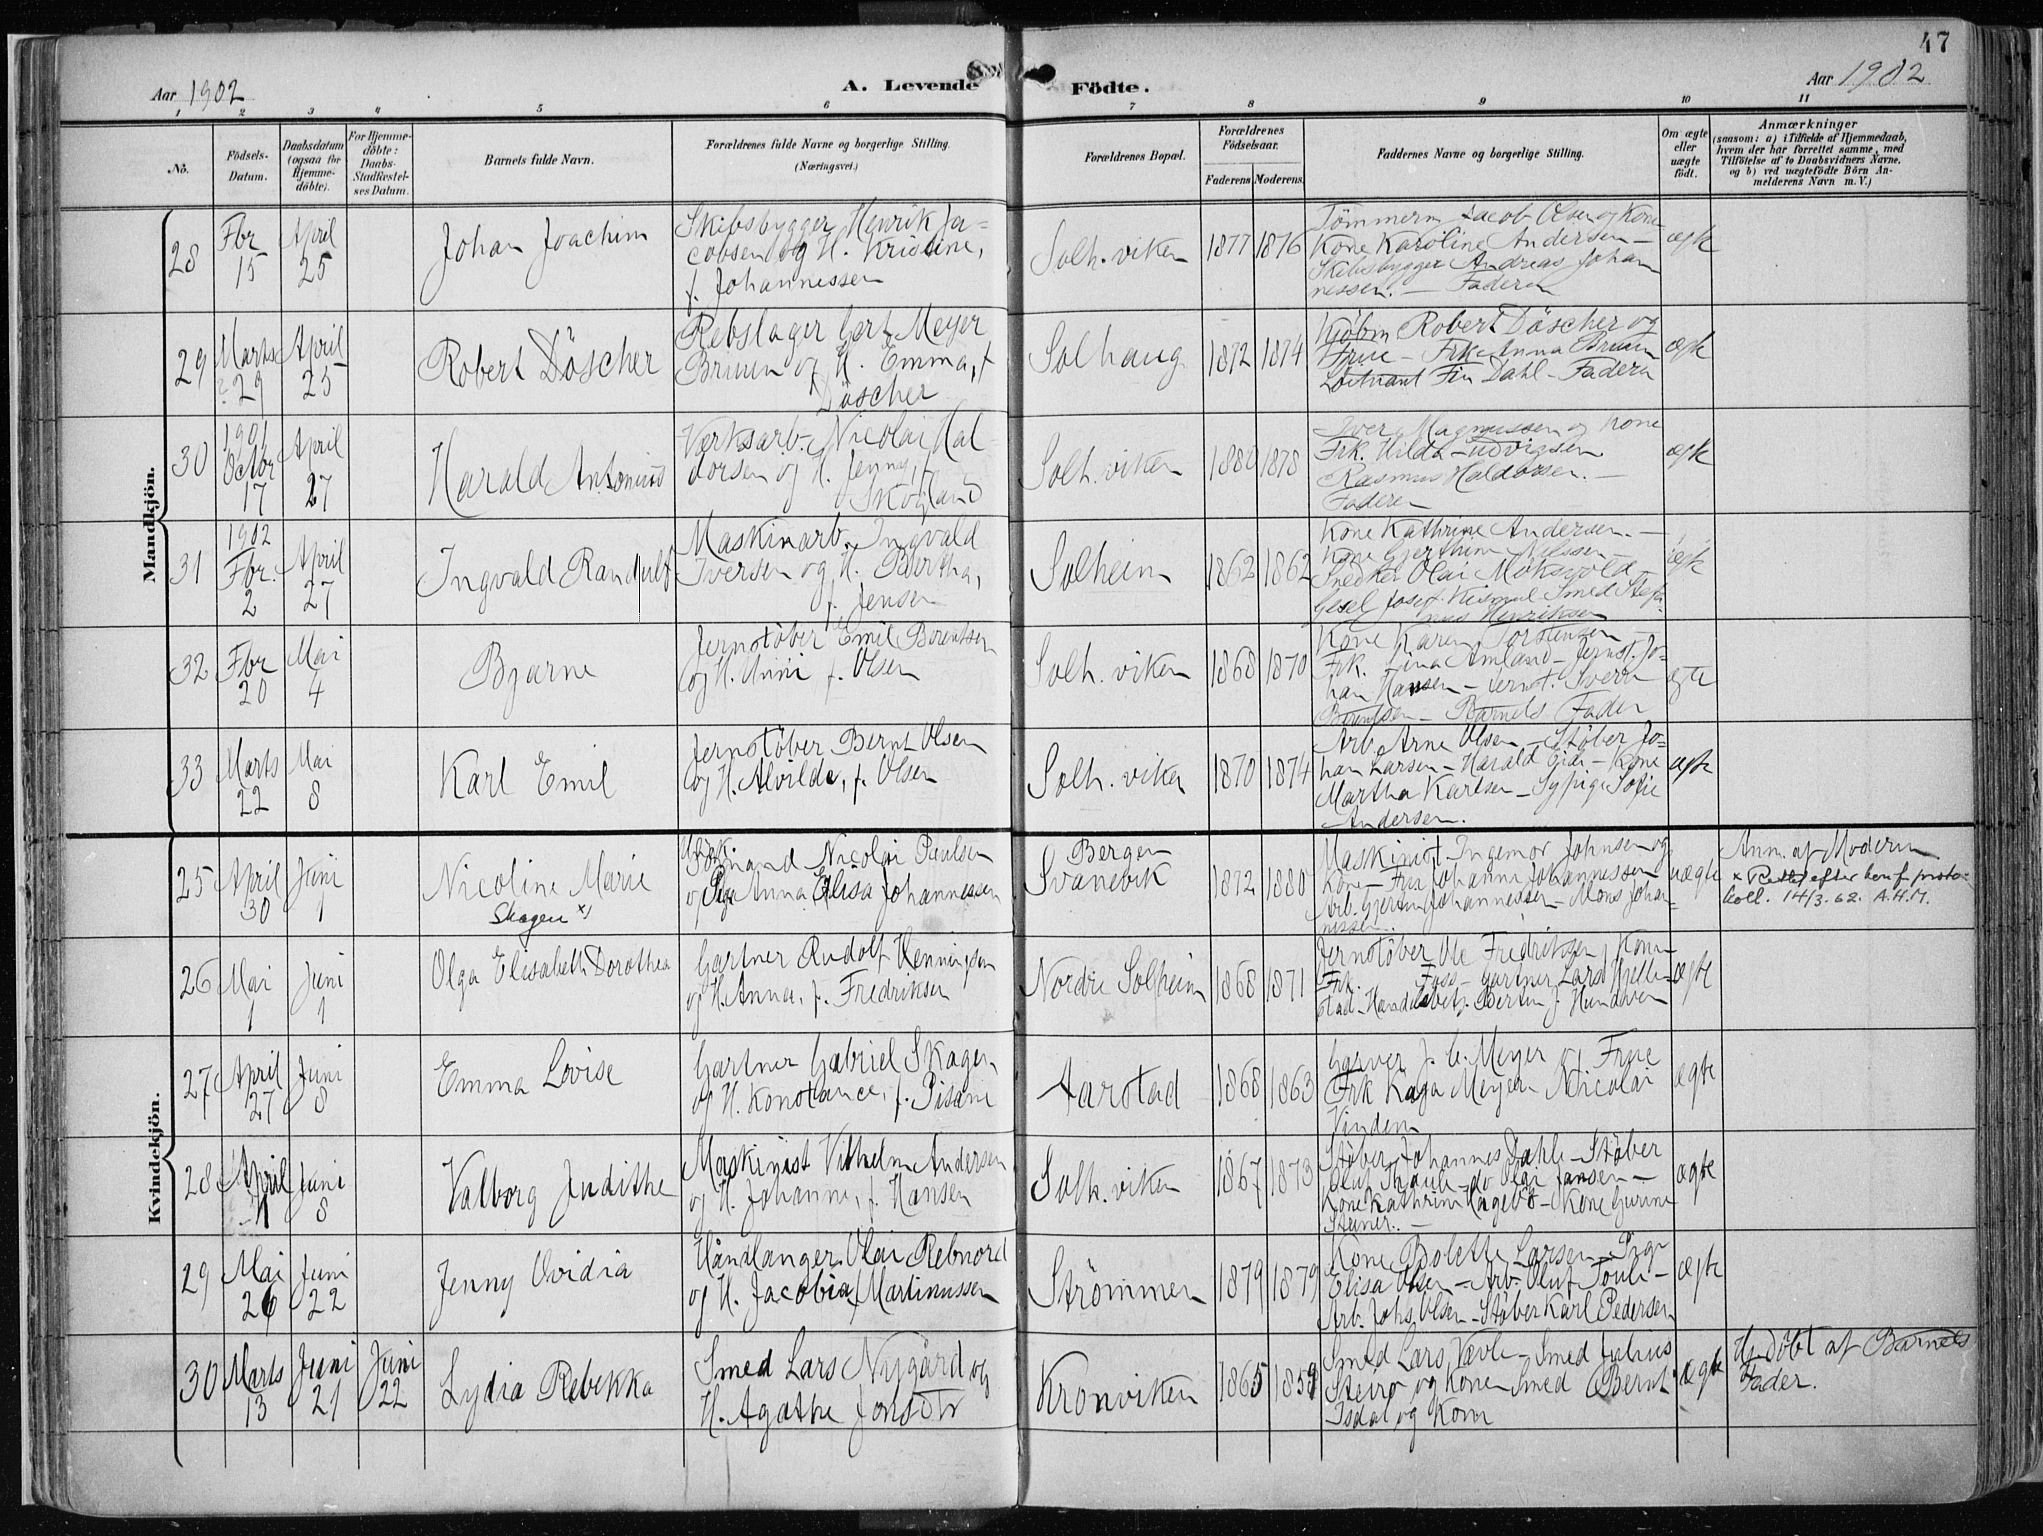 47
Aar 1902
A. Levende Födte.
Aar 1902
1 2 3 4 5 6 7 8 9 10 11
No.
Födsels-Datum.
Daabsdatum (ogsaa for Hjemme-döbte).
For Hjemme-döbte: Daabs-Stadfæstel-ses Datum.
Barnets fulde Navn.
Forældrenes fulde Navne og borgerlige Stilling.
(Næringsvei.)
Forældrenes Bopæl.
Forældrenes Födselsaar.
Faderens Moderens
Faddernes Navne og borgerlige Stilling.
Om ægte eller uægte födt.
Anmærkninger
(saasom: a) i Tilfælde af Hjemmedaab, hvem der har forrettet samme, med Tilföielse af to Daabsvidners Navne, og b) ved uægtefödte Börn Anmelderens Navn m. V.)
Mandkjön.
28 Fbr 15 April 25 Johan Joachim
Skibsbygger Henrik Ja-
cobsen og H. Kristine,
f. Johannessen
Solh. viken 1877 1876
Tömmerm Jacob Olsen og Kone
Kone Karoline Andersen –
Skibsbygger Andreas Johan
nessen. – Faderen
ægte
29 Marts 29 April 25 Robert Döscher
Rebslager Gert Meyer
Bruun og H. Emma, f
Döscher
Solhaug 1872 1874
Kjöbm Robert Döscher og
Frue – Frk Anna Bruun
Löitnant Fin Dahl – Faderen
ægte
30 1901 Octbr 17 April 27 Harald Antonius
Værksarb. Nicolai Hal-
dorsen og H. Jenny, f.
Skogland
Solh. viken 1880 1878
Iver Magnussen og Kone
Frk. Hilda Ludvigsen
Rasmus Haldorsen. –
Faderen
ægte
31 1902 Fbr. 2 April 27 Ingvald Randulf
Maskinarb. Ingvald
Iversen og H. Bertha,
f. Jensen
Solheim 1862 1862
Kone Kathrine Andersen. –
Kone Nilssen –
Snedker Olai
Josef Smed
Henriksen
ægte
32 Fbr 20 Mai 4 Bjarne
Jernstöber Emil Berentsen
og H. Anni f. Olsen
Solh. viken 1868 1870
Kone Karen Torstensen –
Frk. Lina Amland – Jernst. Jo-
han Hansen – Jernst. Sverr
Berentsen – Barnets Fader
ægte
33 Marts 22 Mai 8 Karl Emil
Jernstöber Bernt Olsen
og H. Alvilde, f. Olsen
Solh. viken 1870 1874
Arb. Arne Olsen – Stöber Jo-
han Larsen – Harald Eide – Kone
Martha Karlsen – Sypige Sofie
Andersen.
ægte
Kvindekjön.
25 April 30 Juni 1 Nicoline Marie
Skagen x)
Nicolai Paulsen
og Pige Anna Elisa Johannessen
Bergen
Svanevik 1872 1880
Maskinist Ingemor Johnsen og
Kone – Frk Johanna Johannessen
Arb. Gjertin Johannessen – Mons Johan-
nessen.
uægte
Anm. af Moderen
x Rettet efter konf. proto-
koll. 14/3.62. A.H.M.
26 Mai 1 Juni 1 Olga Elisabeth Dorothea
Gartner Rudolf Henningsen
og H. Anna, f. Fredriksen
Nordre Solheim 1868 1871
Jernstöber Ole Fredriksen, Kone
Frk. Foss – Gartner Lars Hjelle-
stad – Handelsbetj.
ægte
27 April 27 Juni 8 Emma Lovise
Gartner Gabriel Skagen
og H. Konstance, f. Pisani
Aarstad 1868 1863
Garver J. C. Meyer og Frue
Frk Kaga Meyer Nicolai
Vindem
ægte
28 April 4 Juni 8 Valborg Judithe
Maskinist Vilhelm Andersen
og H. Johanna, f. Hansen
Solh. viken 1867 1873
Stöber Johannes Dahle – Stöber
Oluf – do Olai Jansen –
Kone Kathrine – Kone Gurine
Steiner. –
ægte
29 Mai 26 Juni 22 Jenny Ovidia
Haandlanger Olai Rebnord
og H. Jacobia f Martinussen
Strömmen 1879 1879
Kone Bolette Larsen – Pige
Elisa Olsen – Arb. Oluf –
Arb. Johs Olsen – Stöber Karl Pedersen
ægte
30 Marts 13 Juni 21 Juni 22 Lydia Rebekka
Smed Lars Nygård og
H. Agathe Jonsdtr
Kronviken 1865 1859
Smed Lars Vavle – Smed Julius
Steiro og Kone Smed Bernt
Isdal og Kone
ægte
Hj. döbt af Barnets
Fader.